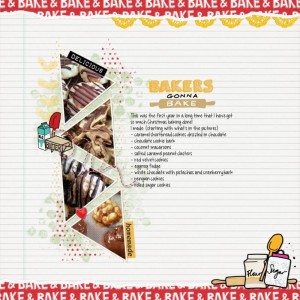 BAKE & BAKE & BAKE & BAKE & BAKE & BAKE & BAKE
DELICIOUS
BAKERS
GONNA
BAKE
This was the first year in a long time that I have got
so much Christmas baking done!
I made (starting with what's in the pictures)
- caramel shortbread cookies drizzled in chocolate
- chocolate cookie bark
- coconut macaroons
- salted caramel peanut clusters
- red velvet cookies
- eggnog fudge
- white chocolate with pistachios and cranberry bark
- penguin cookies
- rolled sugar cookies
homemade
Flour
Sugar
BAKE & BAKE & BAKE & BAKE & BAKE & BAKE